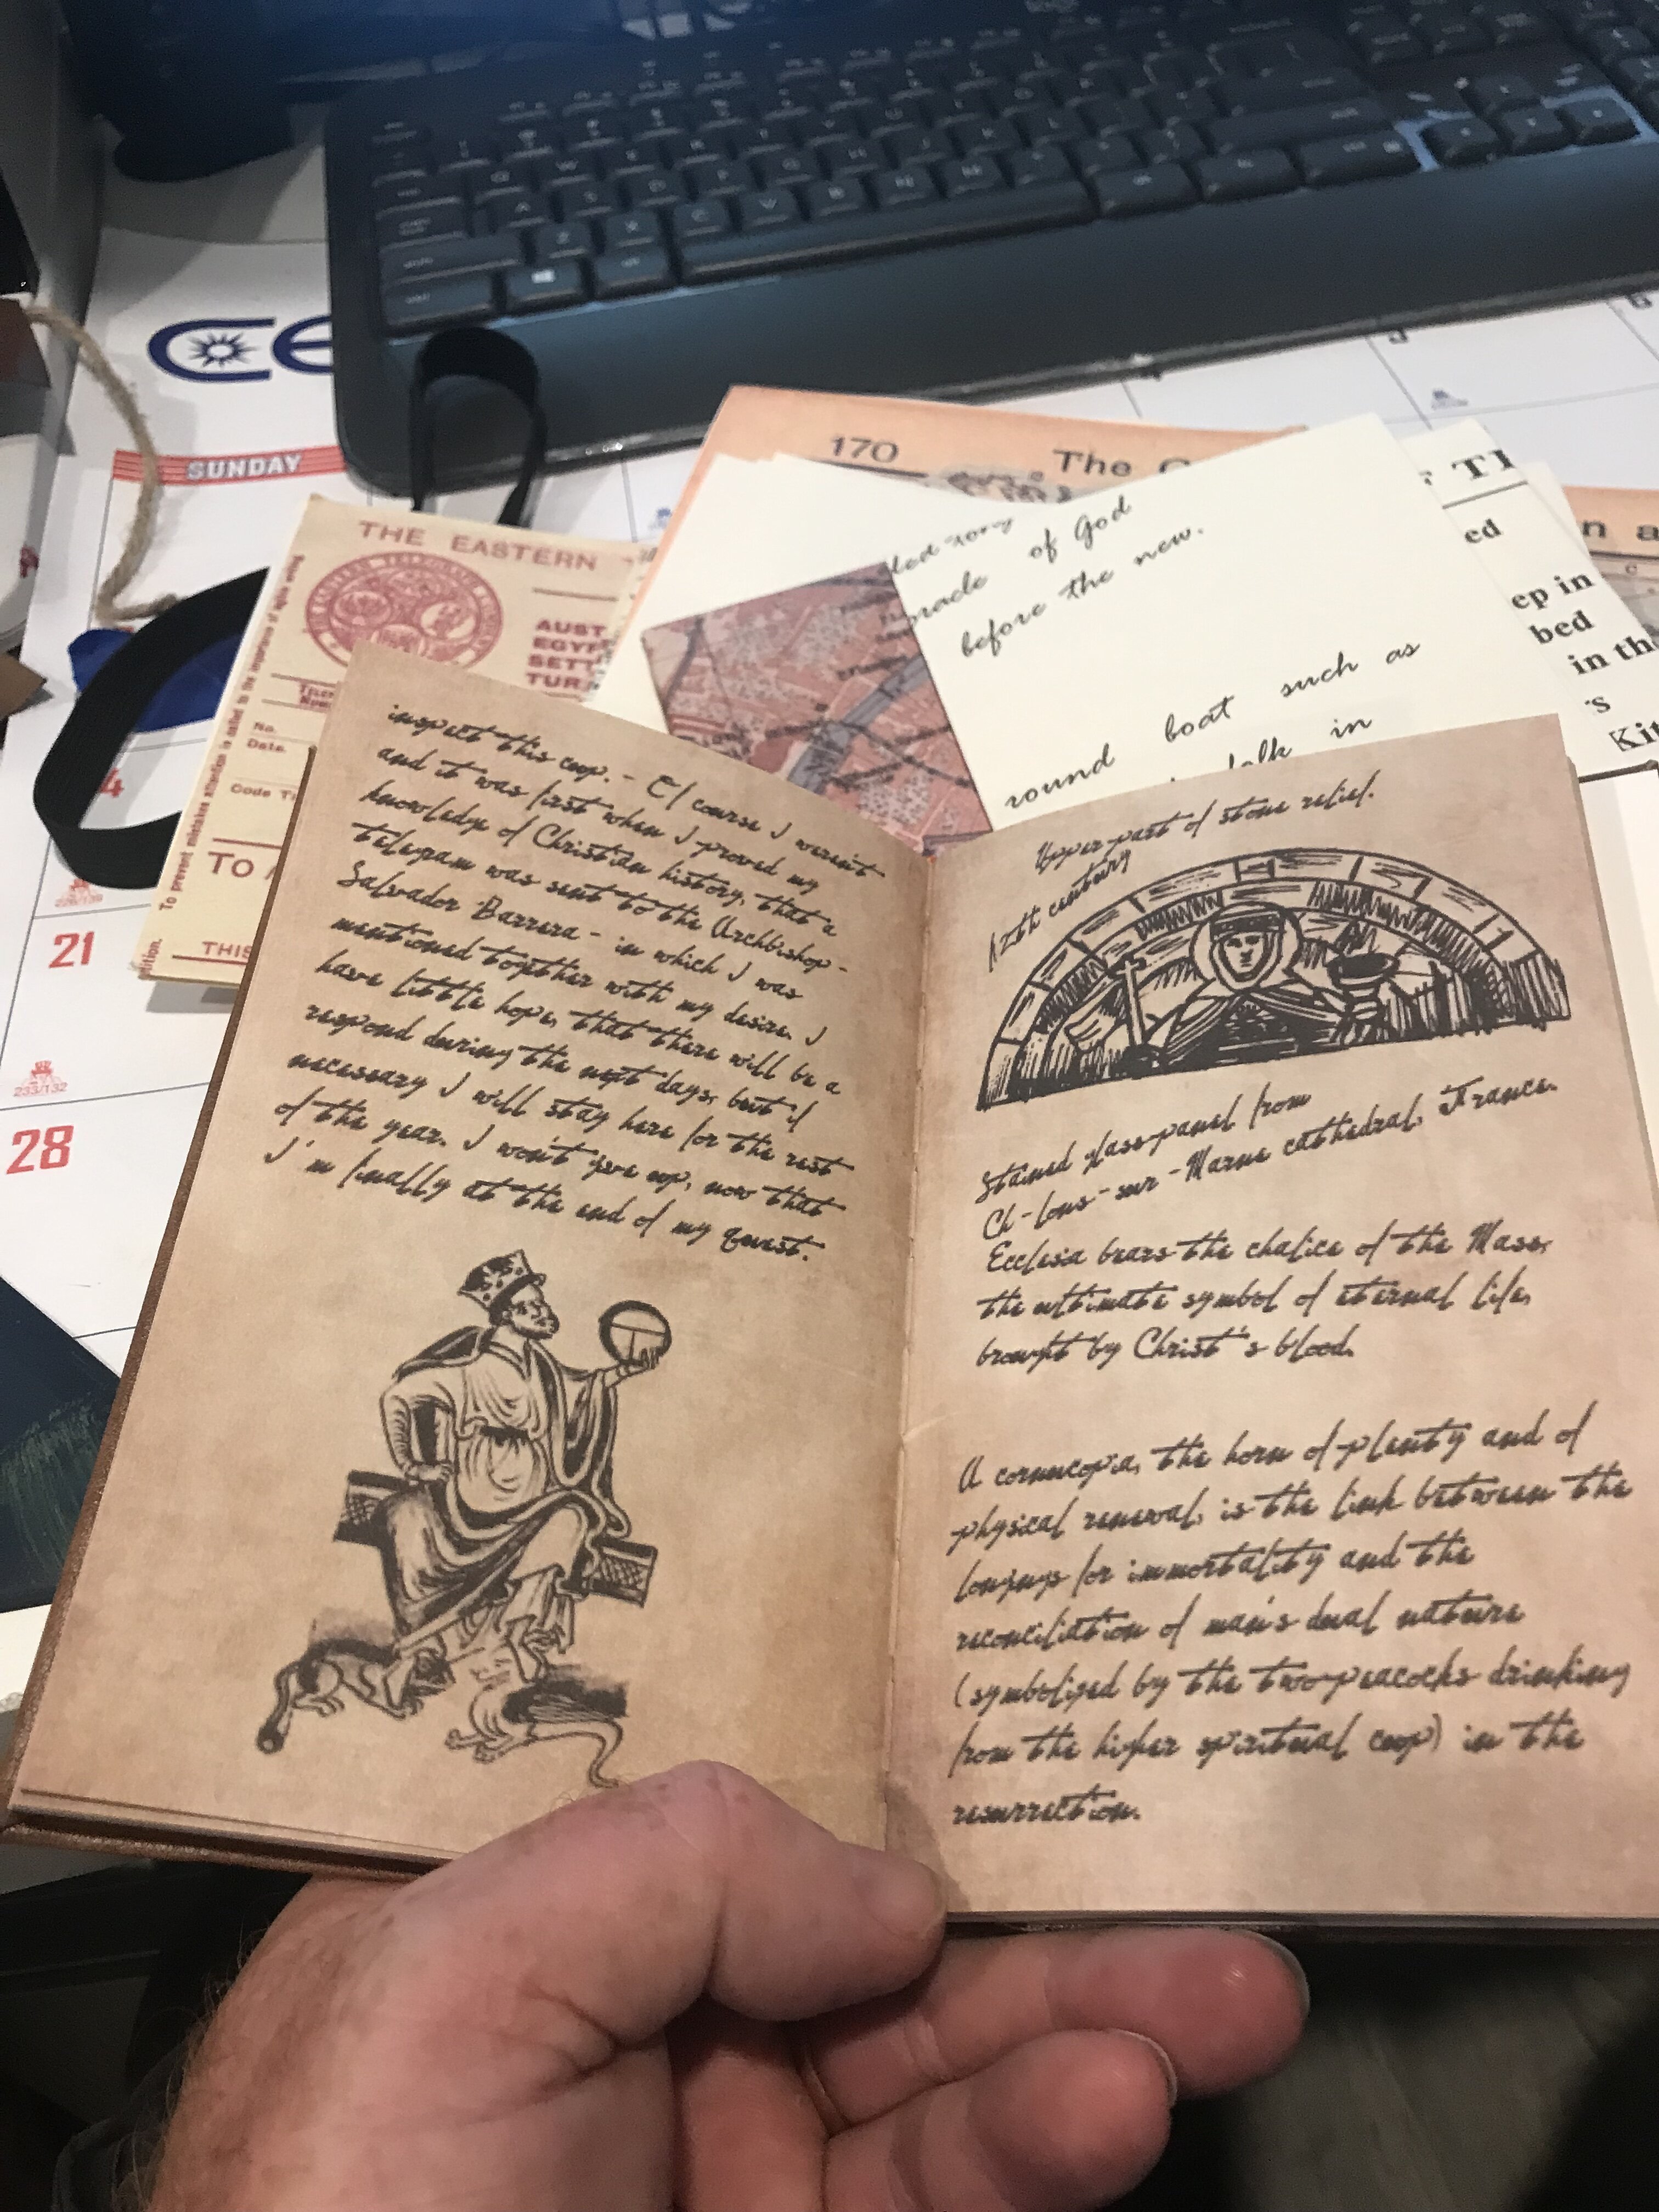 CE
SUNDAY
21
233/132
28
170 The
THE EASTERN
AUST
EGYP
SETT
TUR
No.
Date.
Code
TO
THIS
To prevent mistakes attention is called to the importance of
of God
before the new.
round boat such as
in
ed
ep in
bed
in th
's
Kit
inspect this cup. - Of course I weren't
and it was first when I proved my
knowledge of Christian history, that a
telegram was sent to the Archbishop -
Salvador Barrera - in which I was
mentioned together with my desire. I
have little hope, that there will be a
respond during the next days, but if
necessary I will stay here for the rest
of the year. I won't give up, now that
I'm finally at the end of my quest.
Upper part of stone relief.
12th century
Stained glass panel from
Ch-lons-sur-Marne cathedral, France.
Ecclesa bears the chalice of the Mass,
the ultimate symbol of eternal life,
brought by Christ's blood.
A cornucopia, the horn of plenty and of
physical renewal, is the link between the
longings for immortality and the
reconciliation of man's dual nature
(symbolized by the two peacocks drinking
from the higher spiritual cup) in the
resurrection.